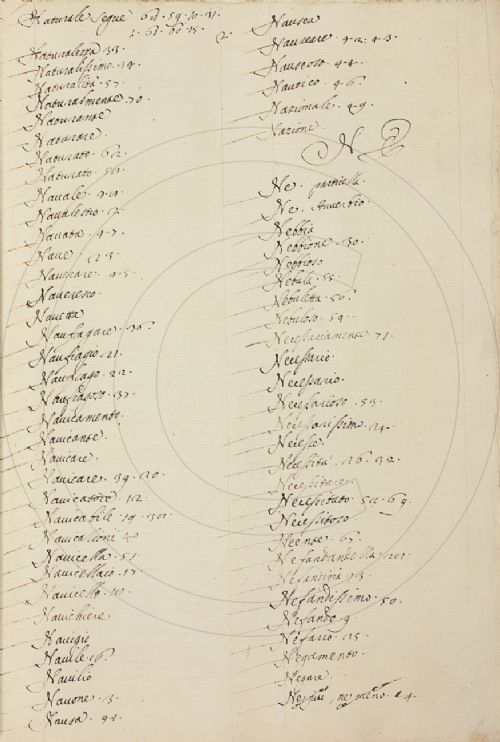 Naturale segue
Naturalezza 33.
Naturalissimo. 34.
Naturalità. 57.
Naturalmente. 70.
Naturante
Naturare.
Naturato. 62.
Naturato.
Navale.
Navalestro.
Navata. 47.
Nave 123
Navicare. 45.
Naveresco.
Navetta
Naufragare. 36.
Naufragio. 21.
Naufrago. 22.
Naufragoso. 37.
Navicamento.
Navicante.
Navicare.
Navicare. 39. 20.
Navicatore. 12.
Navicabile.
Navicazione 40
Navicella. 51.
Navicellaio. 17.
Navicello.
Navichiere
Navigio
Navile 16.
Navilio
Navone. 13.
Nausa. 41.
Nausea
Nauseare. 42. 43.
Nauseoso. 44.
Nautico. 46.
Nazionale. 49.
Nazione.
N E
Ne. particella.
Ne. Avverbio.
Nebbia
Nebbione. 30.
Nebbioso
Nebula. 55.
Nebuletta. 56.
Nebuloso. 54.
Necessariamente. 71.
Necessario
Necessario.
Necessarioso. 53.
Necessarissimo. 24.
Necesse.
Necessità. 26. 32.
Necessitare
Necessitato. 52. 69.
Necessitoso.
Nefandissimo. 50.
Nefando. 9.
Nefario. 25.
Negamento.
Negare.
Ne più, ne meno. 14.